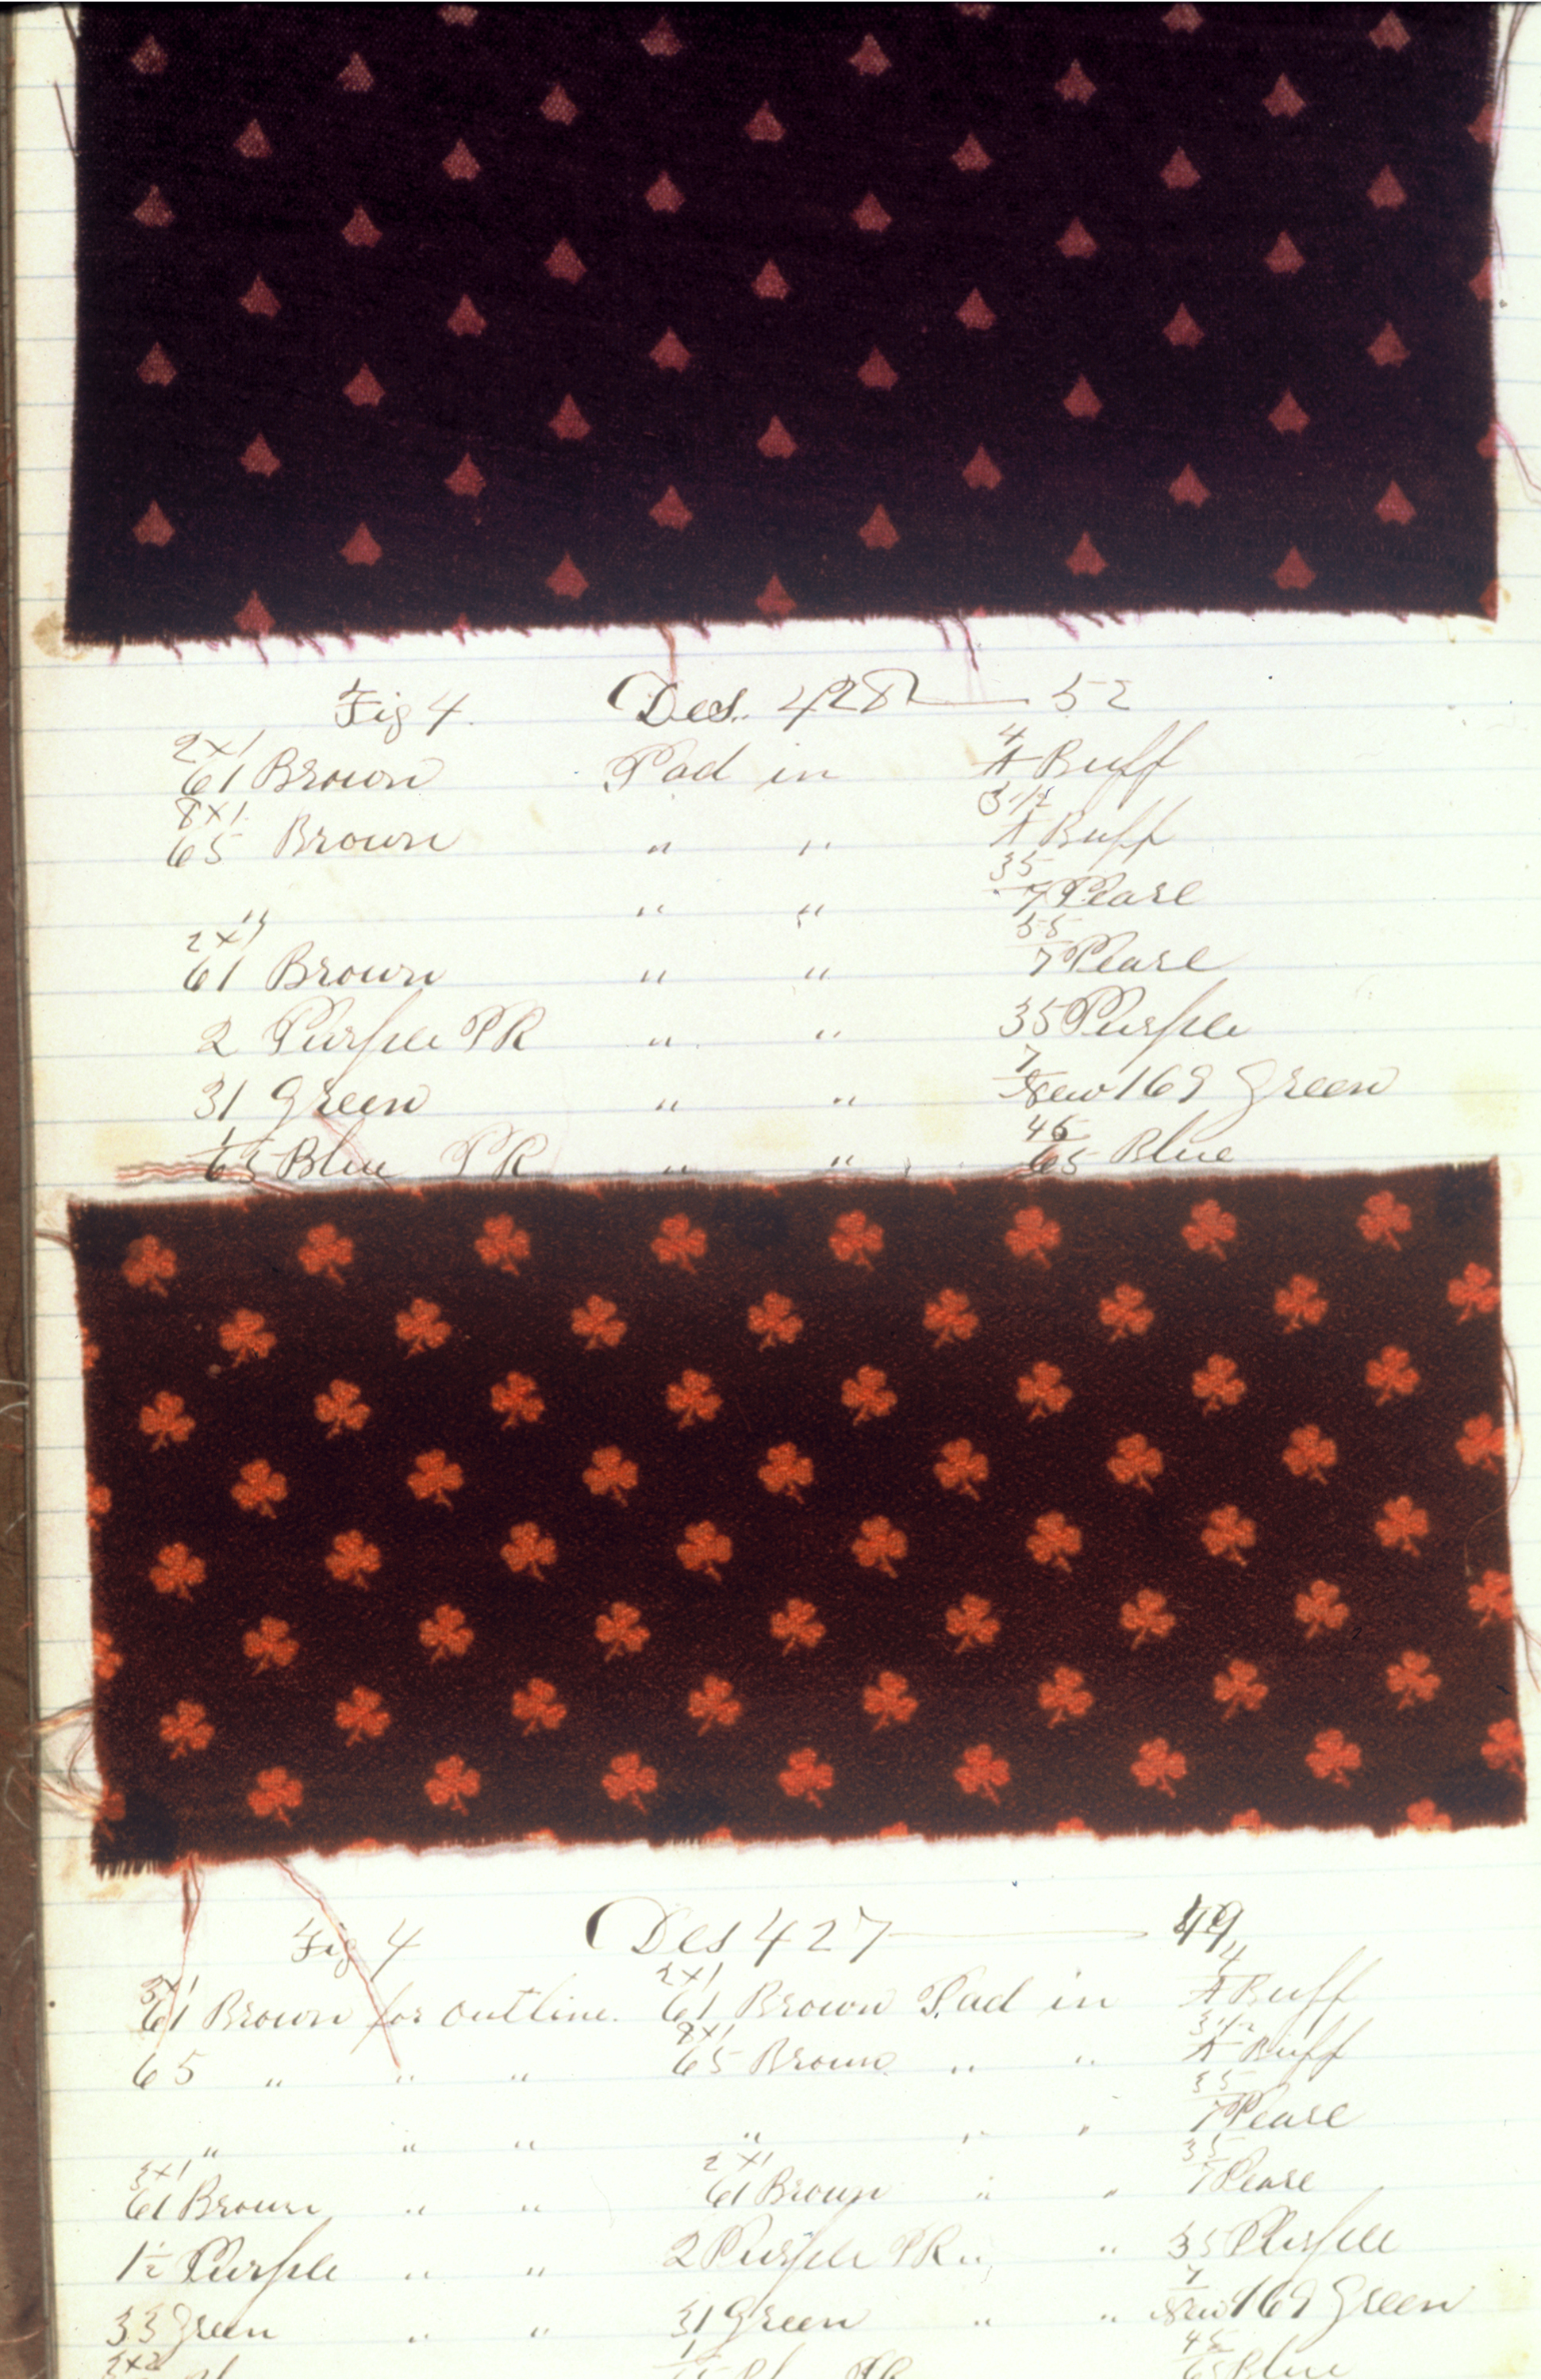 Fig 4. Des. 428 — 52
2x1 61 Brown Pad in 4/A Buff
8x1 65 Brown " " 3 1/2/A Buff
" " " 35/7 Pearl
2x1 61 Brown " " 35/7 Pearl
2 Purple PR " " 35 Purple
31 Green " " 7/New 169 Green
1/65 Blue PR " " 45/65 Blue
Fig 4 Des 427 — 49
3x1 61 Brown for outline. 2x1 61 Brown Pad in 4/A Buff
65 " " " 8x1 65 Brown " " 3 1/2/A Buff
" " " " " " 35/7 Pearl
3x1 61 Brown " " 2x1 61 Brown " " 35/7 Pearl
1 1/2 Purple " " 2 Purple PR " " 35 Purple
33 Green " " 31 Green " " 7/New 169 Green
2x2 PR 45/65 Blue